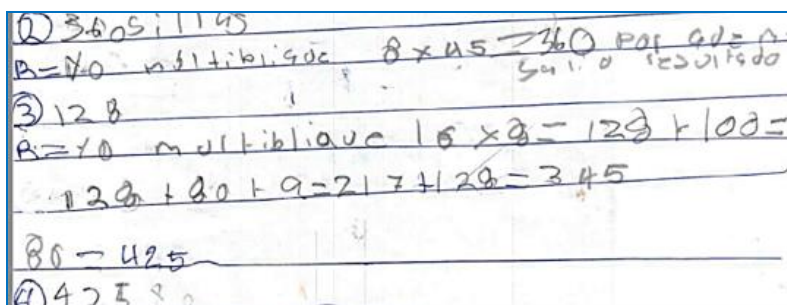 ② 360 sillas
R=Yo multibliqde 8 x 45 = 360 por qde a
salio resultado
③ 128
R=Yo multiblique 16 x 8 = 128 + 100 =
128 + 80 + 9 = 217 + 128 = 345
80 = 425
④ 425